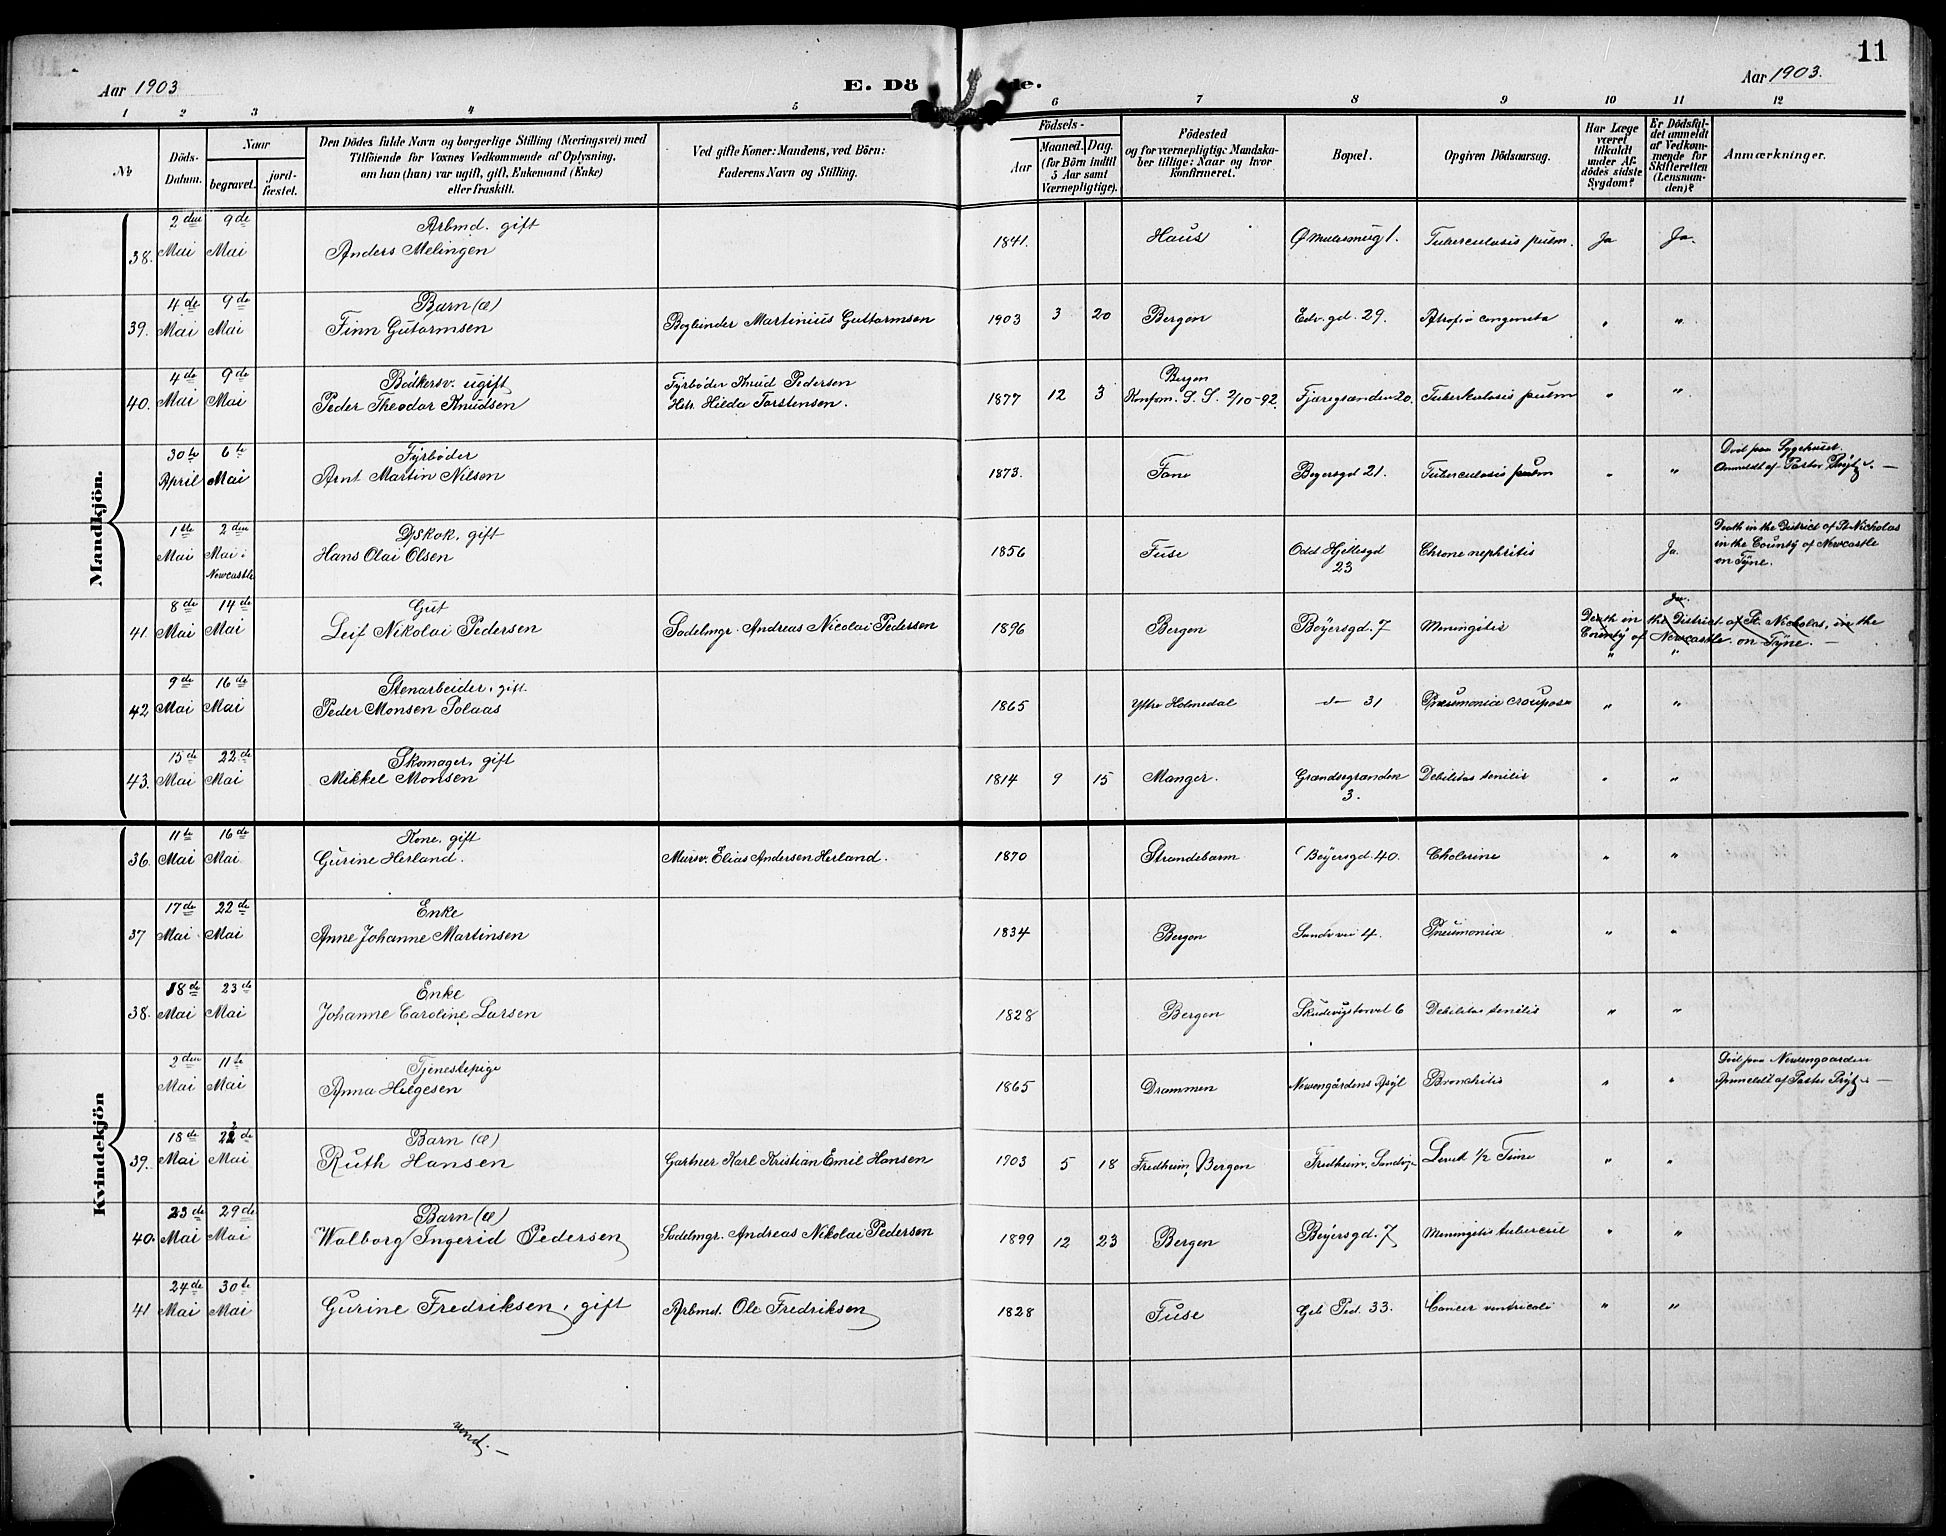 11
Aar 1903
E. Dö de.
Aar 1903.
1 2 3 4 5 6 7 8 9 10 11 12
No
Döds-
Datum.
Naar
begravet.
jord-
fæstet.
Den Dödes fulde Navn og borgerlige Stilling (Næringsvei) med
Tilföiende for Voxnes Vedkommende af Oplysning,
om han (hun) var ugift, gift, Enkemand (Enke)
eller fraskilt.
Ved gifte Koner: Mandens, ved Börn:
Faderens Navn og Stilling.
Födsels-
Aar
Maaned. Dag.
(for Börn indtil
5 Aar samt
Værnepligtige).
Födested
og for værnepligtig: Mandska-
ber tillige: Naar og hvor
konfirmeret.
Bopæl.
Opgiven Dödsaarsag.
Har Læge
været
tilkaldt
under Af-
dödes sidste
Sygdom?
Er Dödsfal-
det anmeldt
af Vedkom-
mende for
Skifteretten
(Lensman-
den)?
Anmærkninger.
Mandkjön.
2den 9de Arbmd. gift
38. Mai Mai Anders Melingen 1841. Haus Ømulesmug 1. Tuberculosis pulm. Ja Ja.
4de 9de Barn (æ)
39. Mai Mai Finn Gutormsen Bogbinder Martinius Guttormsen 1903 3 20 Bergen Edv. gd. 29. Atrofia congenita " "
4de 9de Bødkersv. ugift Fyrbøder Knud Pedersen Bergen
40. Mai Mai Peder Theodor Knudsen Hstr. Hilda Torstensen. 1877 12 3 Konfom. S. S. 2/10-92. Fjæregrænden 20. Tuberkulosis pulm " "
30te 6te Fyrbøder Død paa Sygehuset
April Mai Arnt Martin Nilsen 1873. Fane Bøyersgd 21. Tuberculosis pulm " " Anmeldt af Pastor Prytz. —
1ste 2den Dskok, gift Death in the District of St Nicholas
Mai Mai i Hans Olai Olsen 1856 Fuse Odd Hjeltesgd Chrone nephritis Ja. in the County of Newcastle
Newcastle 23 on Tyne.
8de 14de Gut Ja.
41. Mai Mai Leif Nikolai Pedersen Sadelmgr. Andreas Nicolai Pedersen 1896 Bergen Bøyersgd. 7 Meningitis Death in the District of St. Nicholas, in the
County of Newcastle on Tyne. —
" "
9de 16de Stenarbeider, gift.
42 Mai Mai Peder Monsen Solaas 1865 Yttre Holmedal —do— 31 Pneumonia crouposa " "
15de 22de Skomager, gift
43. Mai Mai Mikkel Monsen 1814 9 15 Manger. Grændsegranden Debilitas senilis " "
3.
Kvindekjön
11te 16de Kone, gift
36. Mai Mai Gurine Herland. Mursv. Elias Andersen Herland. 1870 Strandebarm Bøyersgd. 40. Cholerine " "
17de 22de Enke
37 Mai Mai Anne Johanne Martinsen 1834 Bergen Sandvvei 4. Pneumonia " "
18de 23de Enke
38. Mai Mai Johanne Caroline Larsen 1828 Bergen Skudevigstorvet 6 Debilitas senilis " "
2den 11te Tjenestepige Død paa Neuvengaarden
Mai Mai Anna Helgesen 1865 Drammen Neuvengårdens Asyl Bronchitis " " Anmeldt af Pastor Prytz. —
18de 22de Barn (æ)
39. Mai Mai Ruth Hansen Gartner Karl Kristian Emil Hansen 1903 5 18 Fredheim, Bergen Fredheim, Sandvig Levet 1/2 Time " "
23de 29de Barn (æ)
40. Mai Mai Walborg Ingerid Pedersen Sadelmgr. Andreas Nikolai Pedersen 1899 12 23 Bergen Bøyersgd. 7 Meningitis tubercul " "
24de 30te
41 Mai Mai Gurine Fredriksen, gift Arbmd. Ole Fredriksen 1828 Fuse Geb Ped. 33. Cancer ventricoli " "
vend. —